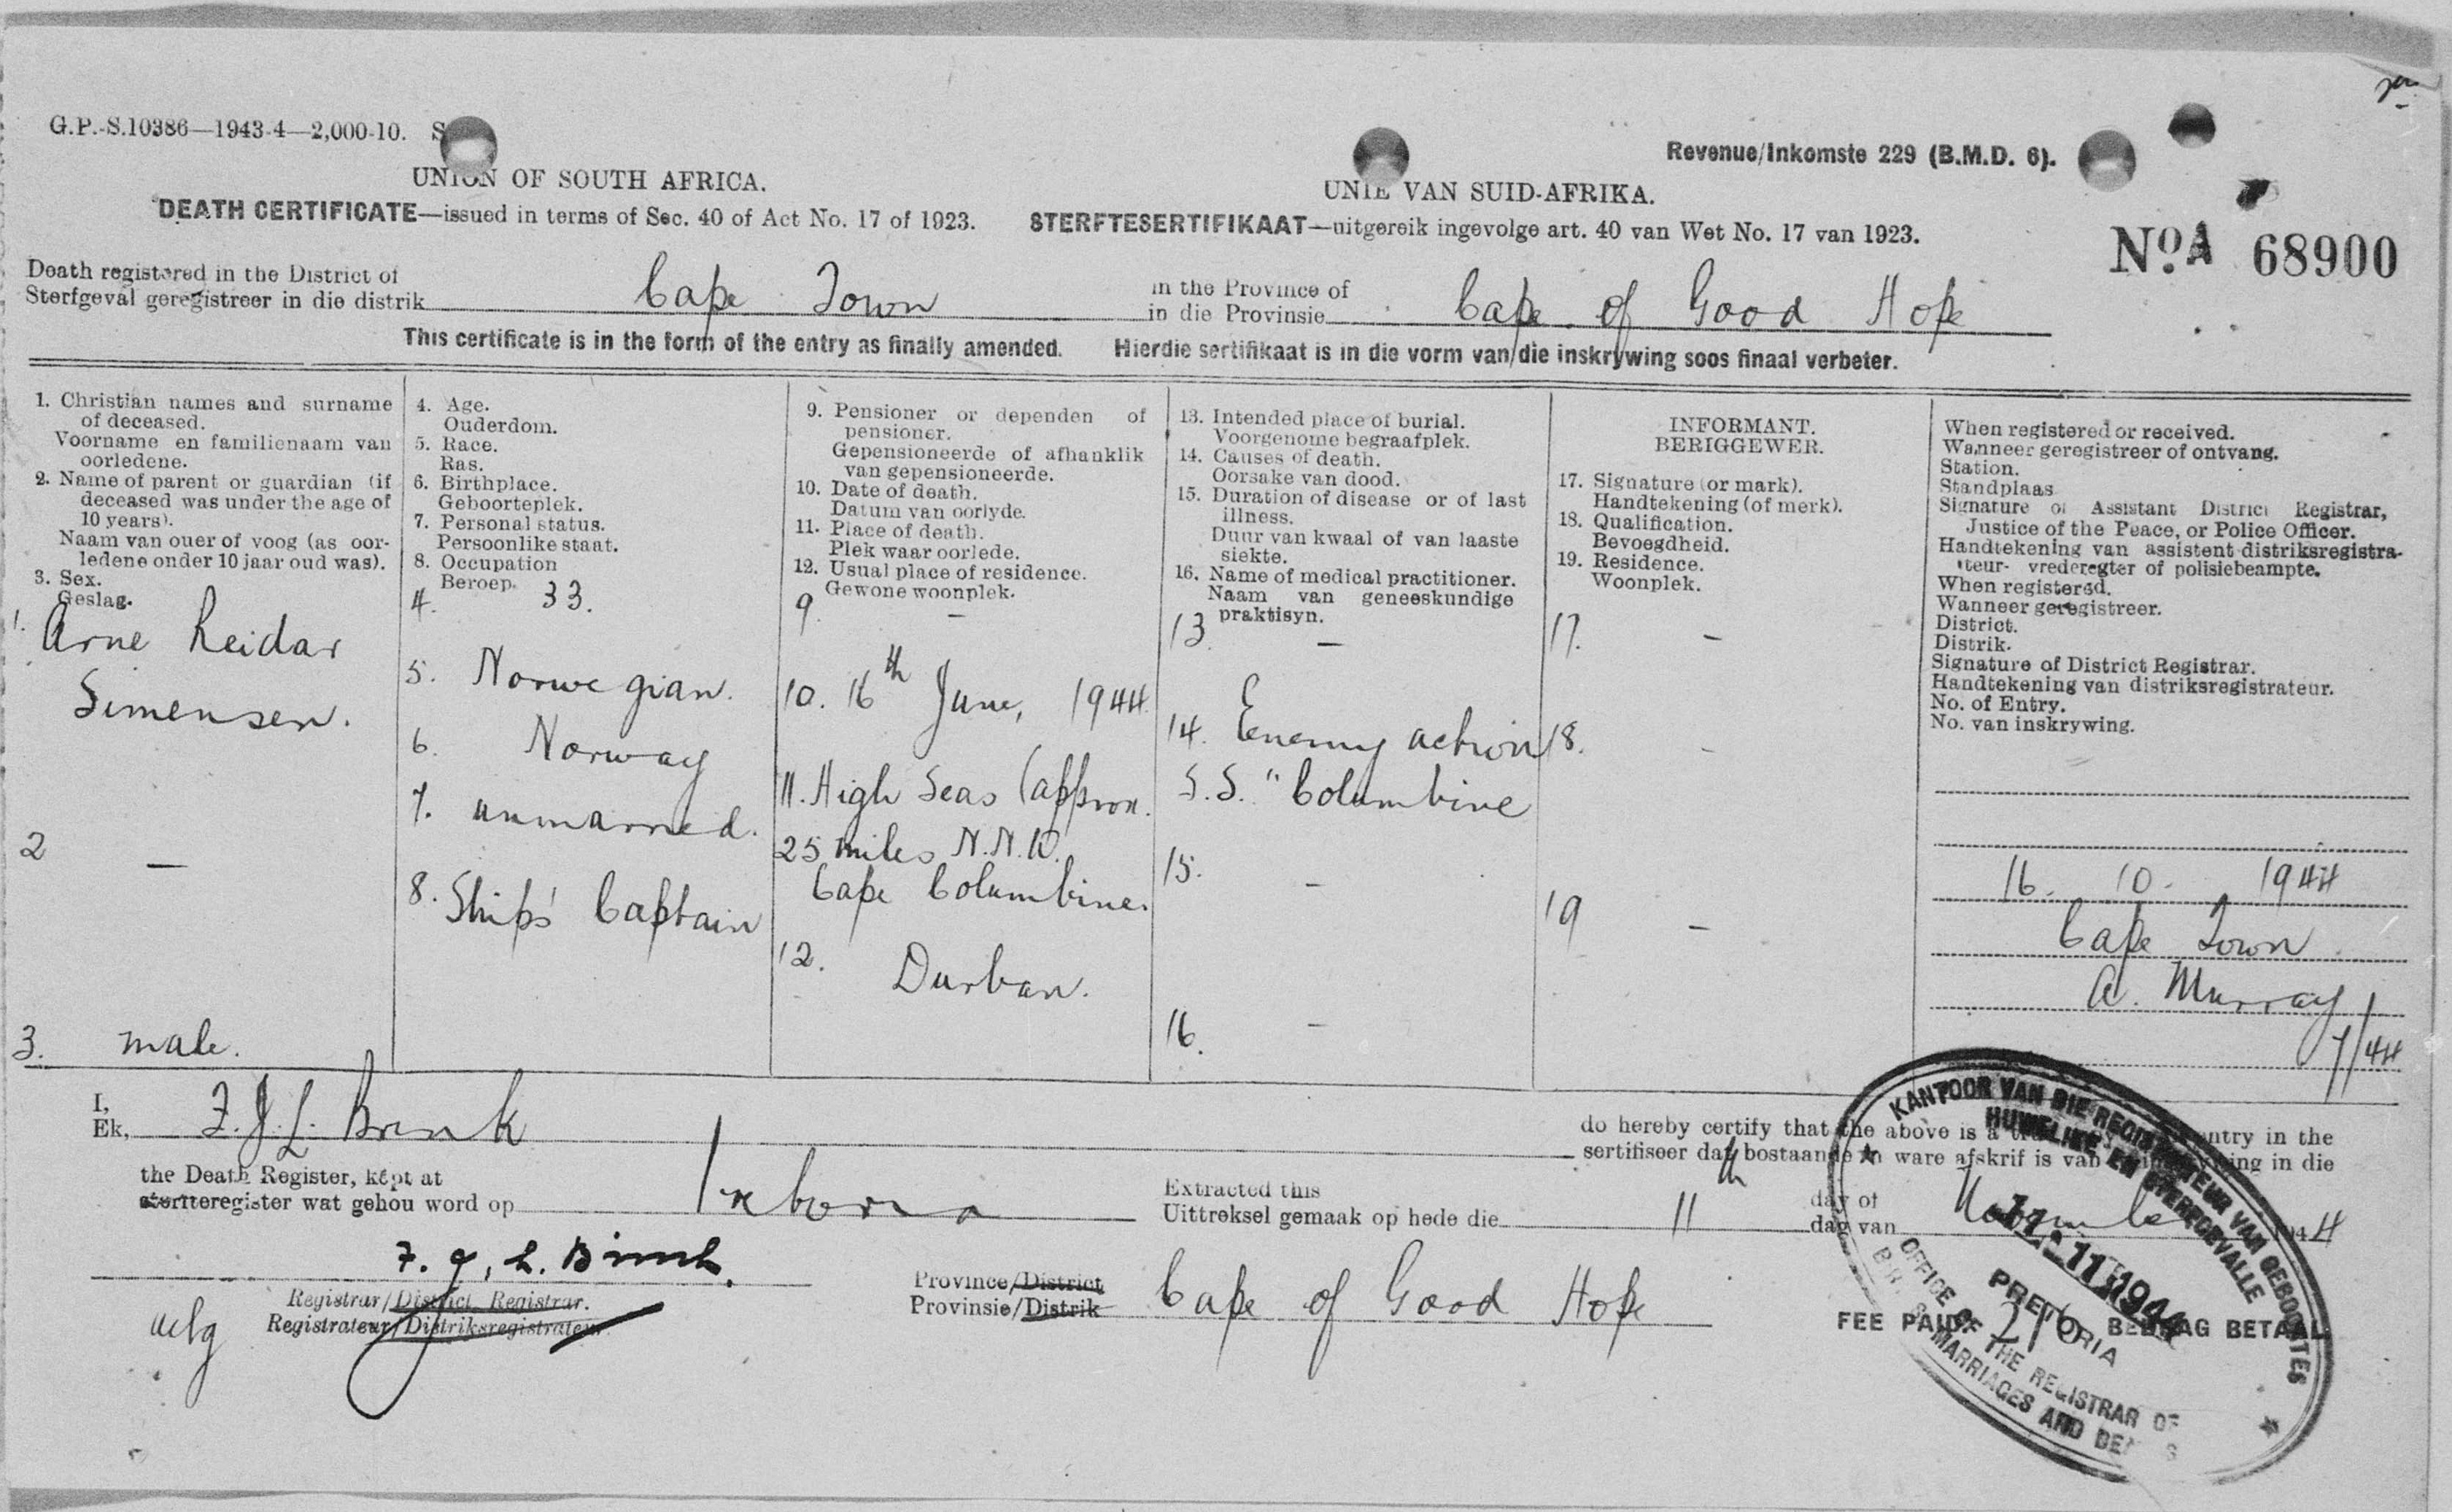 G.P.-S.10386—1943-4—2,000-10. S
Revenue/Inkomste 229 (B.M.D. 6).
UNION OF SOUTH AFRICA.
UNIE VAN SUID-AFRIKA.
DEATH CERTIFICATE—issued in terms of Sec. 40 of Act No. 17 of 1923.
STERFTESERTIFIKAAT—uitgereik ingevolge art. 40 van Wet No. 17 van 1923.
No. A 68900
Death registered in the District of
Sterfgeval geregistreer in die distrik Cape Town
in the Province of
in die Provinsie Cape of Good Hope
This certificate is in the form of the entry as finally amended.
Hierdie sertifikaat is in die vorm van die inskrywing soos finaal verbeter.
1. Christian names and surname
of deceased.
Voorname en familienaam van
oorledene.
2. Name of parent or guardian (if
deceased was under the age of
10 years).
Naam van ouer of voog (as oor-
ledene onder 10 jaar oud was).
3. Sex.
Geslag.
1. Arne Reidar
Simensen.
2 —
3. male.
4. Age.
Ouderdom.
5. Race.
Ras.
6. Birthplace.
Geboorteplek.
7. Personal status.
Persoonlike staat.
8. Occupation
Beroep.
4. 33.
5. Norwegian.
6. Norway
7. unmarried.
8. Ship's Captain
9. Pensioner or dependen of
pensioner.
Gepensioneerde of afhanklik
van gepensioneerde.
10. Date of death.
Datum van oorlyde.
11. Place of death.
Plek waar oorlede.
12. Usual place of residence.
Gewone woonplek.
9. —
10. 16th June, 1944
11. High Seas (approx.
25 miles N.N.W.
Cape Columbine.
12. Durban.
13. Intended place of burial.
Voorgenome begraafplek.
14. Causes of death.
Oorsake van dood.
15. Duration of disease or of last
illness.
Duur van kwaal of van laaste
siekte.
16. Name of medical practitioner.
Naam van geneeskundige
praktisyn.
13. —
14. Enemy action
S.S. "Columbine
15. —
16. —
INFORMANT.
BERIGGEWER.
17. Signature (or mark).
Handtekening (of merk).
18. Qualification.
Bevoegdheid.
19. Residence.
Woonplek.
17. —
18. —
19 —
When registered or received.
Wanneer geregistreer of ontvang.
Station.
Standplaas
Signature of Assistant District Registrar,
Justice of the Peace, or Police Officer.
Handtekening van assistent-distriksregistra-
teur- vrederegter of polisiebeampte.
When registered.
Wanneer geregistreer.
District.
Distrik.
Signature of District Registrar.
Handtekening van distriksregistrateur.
No. of Entry.
No. van inskrywing.
16. 10. 1944
Cape Town
A. Murray
7/44
I,
Ek, F.J.L. Brink
do hereby certify that the above is a entry in the
sertifiseer dat bostaande 'n ware afskrif is van in die
the Death Register, kept at
sterfteregister wat gehou word op
Extracted this
Uittreksel gemaak op hede die 11th
day of
dag van November 1944
F. J. L. Brink.
Registrar/District Registrar.
Registrateur/Distriksregistrateur.
Province/District
Provinsie/Distrik Cape of Good Hope
FEE PAID 2/6 BEDRAG BETAAL
KANTOOR VAN DIE REGISTRATEUR VAN GEBOORTES
HUWELIKE EN STERFGEVALLE
11-11-1944
PRETORIA
OFFICE OF THE REGISTRAR OF
MARRIAGES AND DEATHS